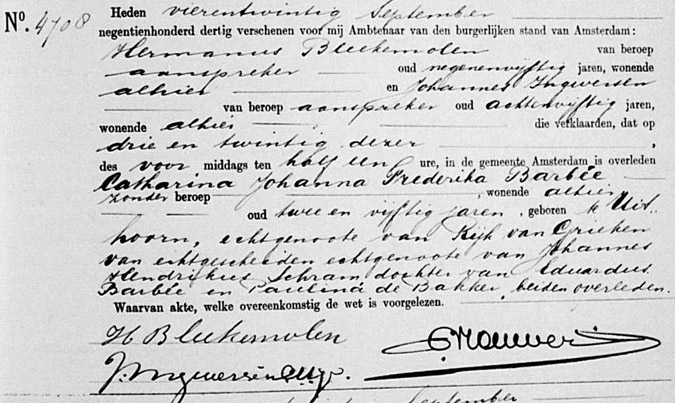 No. 4708
Heden vierentwintig September
negentienhonderd dertig verschenen voor mij Ambtenaar van den burgerlijken stand van Amsterdam:
Hermanus Bleekemolen van beroep
aanspreker oud negenenvijftig jaren, wonende
alhier en Johannes Ingwersen
van beroep aanspreker oud achtenvijftig jaren,
wonende alhier, die verklaarden, dat op
drie en twintig dezer,
des voor middags ten half een ure, in de gemeente Amsterdam is overleden
Catharina Johanna Frederika Barbée
zonder beroep, wonende alhier
oud twee en vijftig jaren, geboren te Uit-
hoorn, echtgenoote van Rijk van Grieken
van echtgescheiden echtgenoote van Johannes
Hendrikus Schram dochter van Eduardus
Barbée en Paulina de Bakker, beiden overleden.
Waarvan akte, welke overeenkomstig de wet is voorgelezen.
H Bleekemolen
J. Ingwersen
September